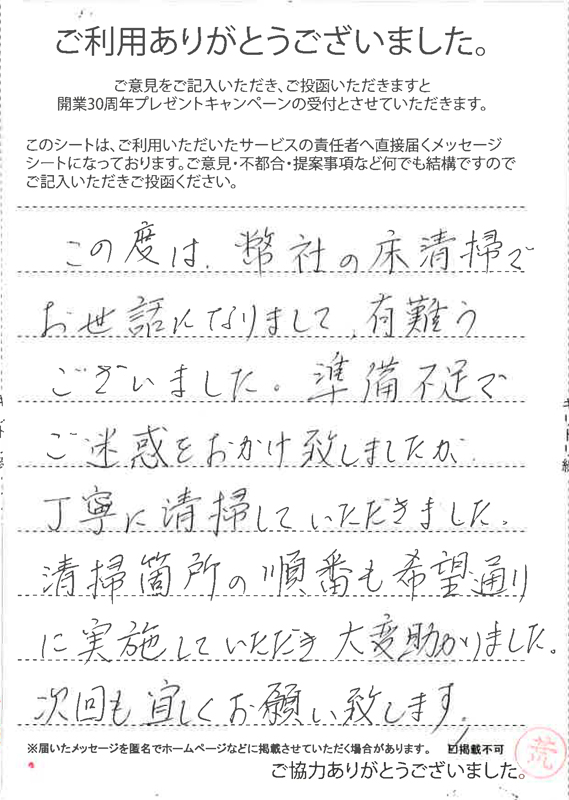 ご利用ありがとうございました。
ご意見をご記入いただき、ご投函いただきますと
開業30周年プレゼントキャンペーンの受付とさせていただきます。
このシートは、ご利用いただいたサービスの責任者へ直接届くメッセージ
シートになっております。ご意見・不都合・提案事項など何でも結構ですので
ご記入いただきご投函ください。
この度は、幣社の床清掃で
お世話になりまして、有難う
ございました。準備不足で
ご迷惑をおかけ致しましたが、
丁寧に清掃していただきました。
清掃箇所の順番も希望通り
に実施していただき大変助かりました。
次回も宜しくお願い致します。
※届いたメッセージを匿名でホームページなどに掲載させていただく場合があります。 掲載不可
ご協力ありがとうございました。
荒